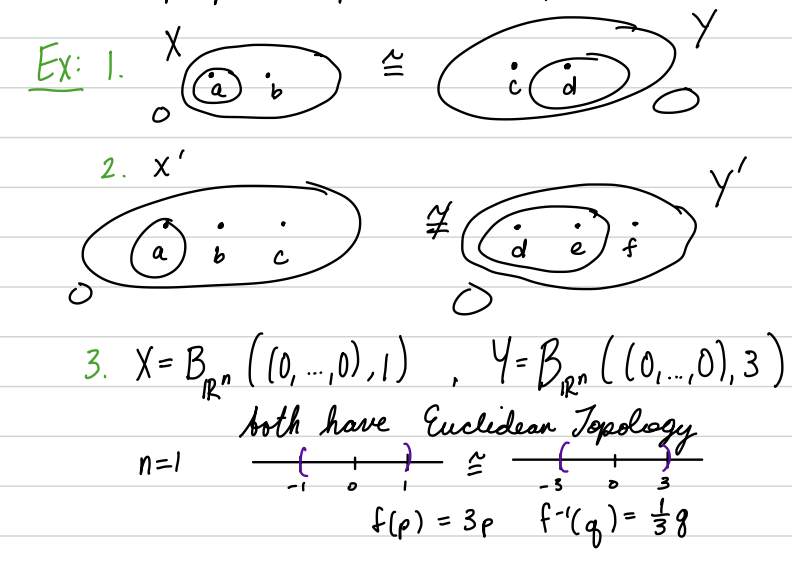 Ex: 1. X a b ≅ c d Y
2. X' a b c ≇ d e f Y'
3. X = B_ℝⁿ ((0,...,0),1) , Y = B_ℝⁿ ((0,...,0),3)
both have Euclidean Topology
n=1 ( ) ≅ ( )
-1 0 1 -3 0 3
f(p) = 3p f⁻¹(q) = 1/3 q